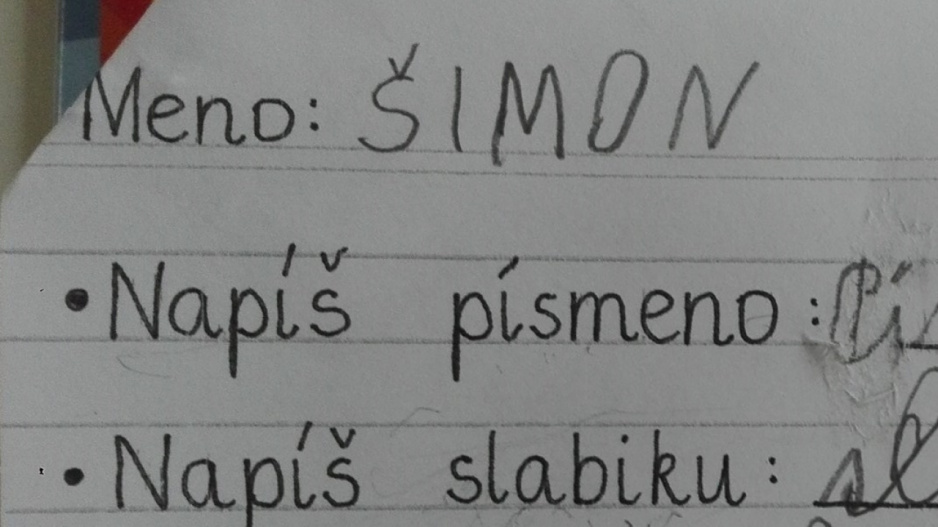 Meno: ŠIMON
• Napíš písmeno:
• Napíš slabiku: